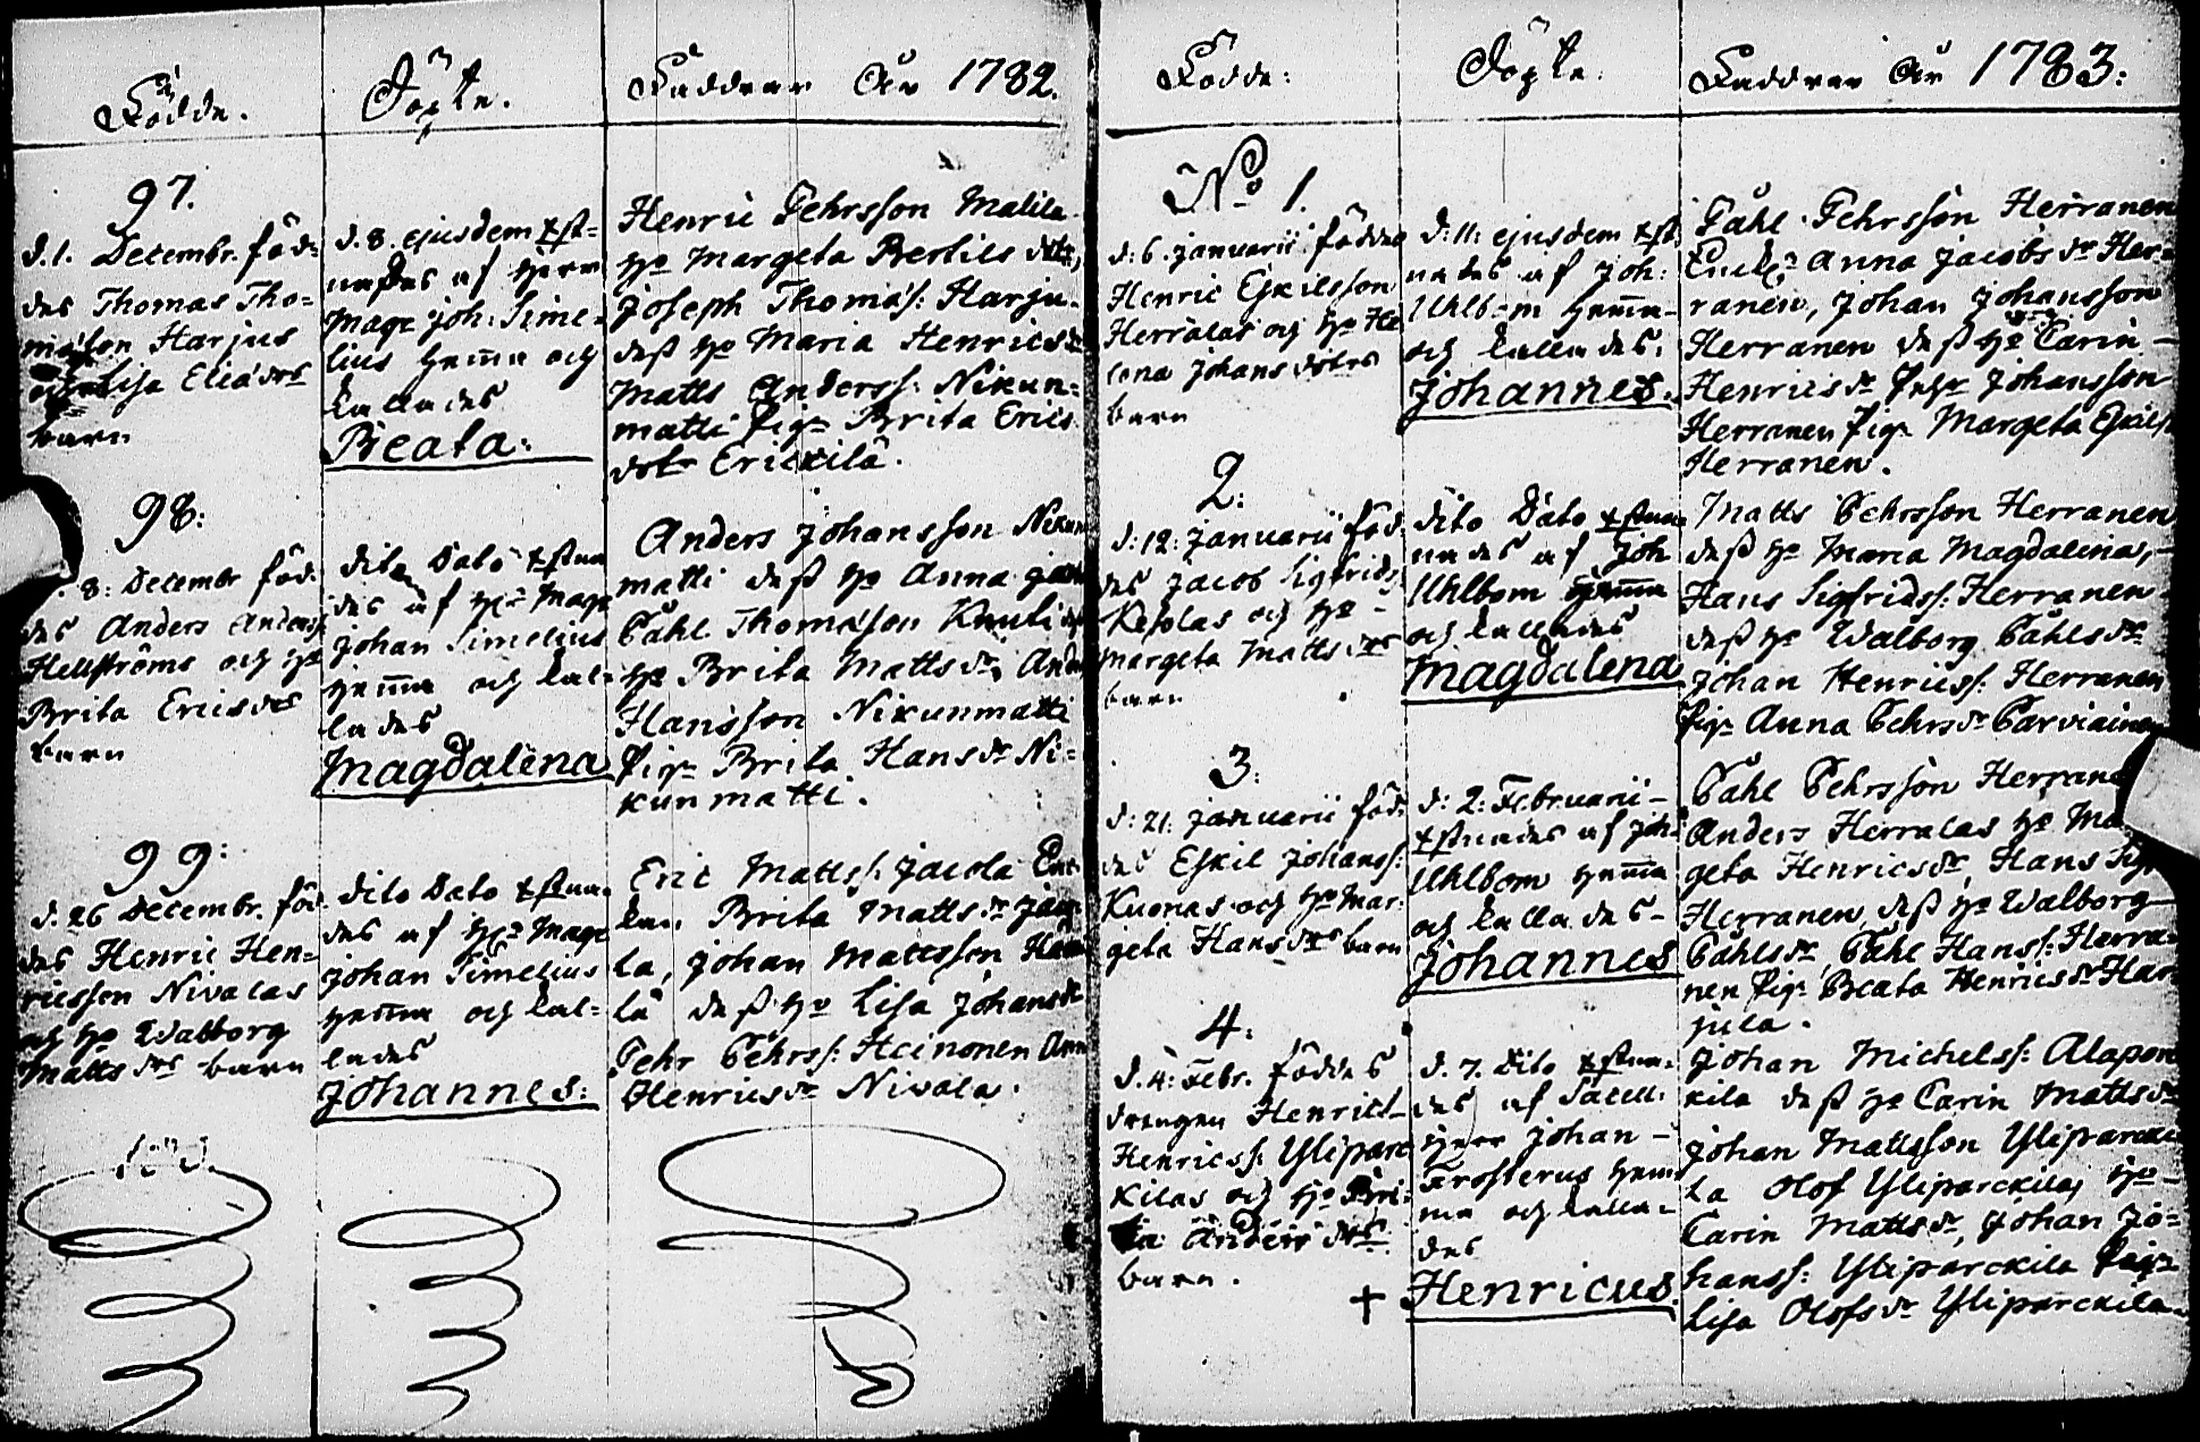 Födde.
Döpte.
Faddrar År 1782.
97.
d. 1. Decembr. föd=
des Thomas Tho=
mæson Harjus
och Lisa Eliædrs
barn
d. 8. ejusdem xst=
nades af Herr
Mag: Joh: Sime=
lius hemma och
kallades
Beata:
Henric Pehrsson Malila
ho Margeta Bertils dotr,
Joseph Thomæs: Harju.
dess ho Maria Henricsdr
Matts Anderss: Nikun=
matti pig: Brita Erics
dotr Erickilä.
98:
8: Decembr föd:
des Anders Anderss
Hellströms och ho
Brita Ericsdrs
barn
dito Dato xstna
des af Hr Mag:
Johan Simelius
hemma och kal=
lades
Magdalena
Anders Johansson Nikun
matti dess ho Anna
Påhl Thomæson Knuti
ho Brita Mattsdr,
Hansson Nikunmatti
pig: Brita Hansdr Ni=
kunmatti.
99:
d. 26 Decembr. föd
des Henric Hen=
ricsson Nivalas
och ho Walborg
Matts drs barn
dito Dato xstna
des af Hr Mag:
Johan Simelius
hemma och kal=
lades
Johannes:
Eric Mattss: Jacola
Brita Mattsdr
la, Johan Mattsson
lä dess ho Lisa Johansdr
Pehr Pehrss: Heinonen
Henricsdr Nivala.
Födde:
Döpte.
Faddrar År 1783:
No 1.
d: 6. Januarii föddes
Henric Eskilsson
Herralas och ho He
lena Johansdotrs
barn
d: 11: ejusdem xst
nades af Joh:
Uhlbom hemma
och kallades:
Johannes.
Påhl Pehrsson Herranen
Anna Jacobs dr Her=
ranen, Johan Johansson
Herranen dess ho Carin
Henricsdr Johansson
Herranen pig: Margeta Eskilsdr
Herranen.
2:
d: 12: Januarii föd
des Jacob Sigfrids
Kesolas och ho
Margeta Matts drs
barn
dito Dato xstna
nades af Joh
Uhlbom hemma
och kallades
Magdalena
Matts Pehrsson Herranen
dess ho Maria Magdalena,
Hans Sigfridss: Herranen
dess ho Walborg Påhlsdr
Johan Henricss: Herranen
pig: Anna Pehrsdr Parviainen
3:
d: 21: Januarii föd
des Eskil Johanss:
Kuonas och ho Mar:
geta Hans drs barn
d: 2: Februarii
xstnades af Joh:
Uhlbom hemma
och kallades
Johannes
Påhl Pehrsson Herrane
Anders Herralas ho Mar
geta Henricsdr, Hans Sigf
Herranen, dess ho Walborg
Påhlsdr, Påhl Hanss: Herra=
nen pig: Beata Henricsdr Har
jula.
4:
d. 4: Febr. föddes
drengen Henrics
Henricss: Yliparc
kilas och ho Bri:
ta Anders drs
barn.
d. 7. Dito xstna
des af Sacell:
Herr Johan
Frosterus hem
ma och kalla=
des
+ Henricus.
Johan Michelss: Alaparc
kila dess ho Carin Mattsdr
Johan Mattsson Yliparcki
la Olof Yliparckila, ho
Carin Mattsdr, Johan Jo=
hanss: Yliparckila pig:
Lisa Olofsdr Yliparckila.